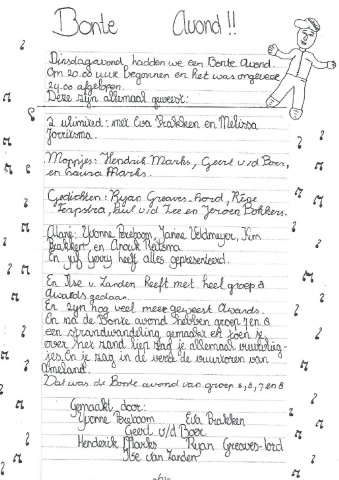 Bonte Avond!!
Dinsdagavond, hadden we een Bonte Avond.
Om 20.00 uur begonnen en het was ongeveer
24.00 afgelopen.
Deze zijn allemaal geweest:
2 unlimited: met Eva Brakken en Melissa
Jorritsma.
Mopjes: Hendrik Marks, Geert v/d Boer,
en Laura Marks.
Gedichten: Ryan Greaves-Lord,
Terpstra, Paul v/d Zee en Jeroen Bakkers.
Yvonne Pereboom, Janine Veldmeyer, Kim
Brakken, en Anouk Reitsma
En juf Gerry heeft alles gepresenteerd.
En Ilse v. Zanden heeft met heel groep 8
Awards gedaan.
En zijn nog veel meer geweest Awards.
En na de Bonte avond hebben groep 7 en 8
een strandwandeling gemaakt en toen je
over het zand liep zag je allemaal
jes. En je zag in de verte de vuurtoren van
Ameland.
Dat was de Bonte avond van groep 7 en 8
Gemaakt door:
Yvonne Pereboom Eva Brakken
Geert v/d Boer
Henderik Marks Ryan Greaves-Lord
Ilse van Zanden